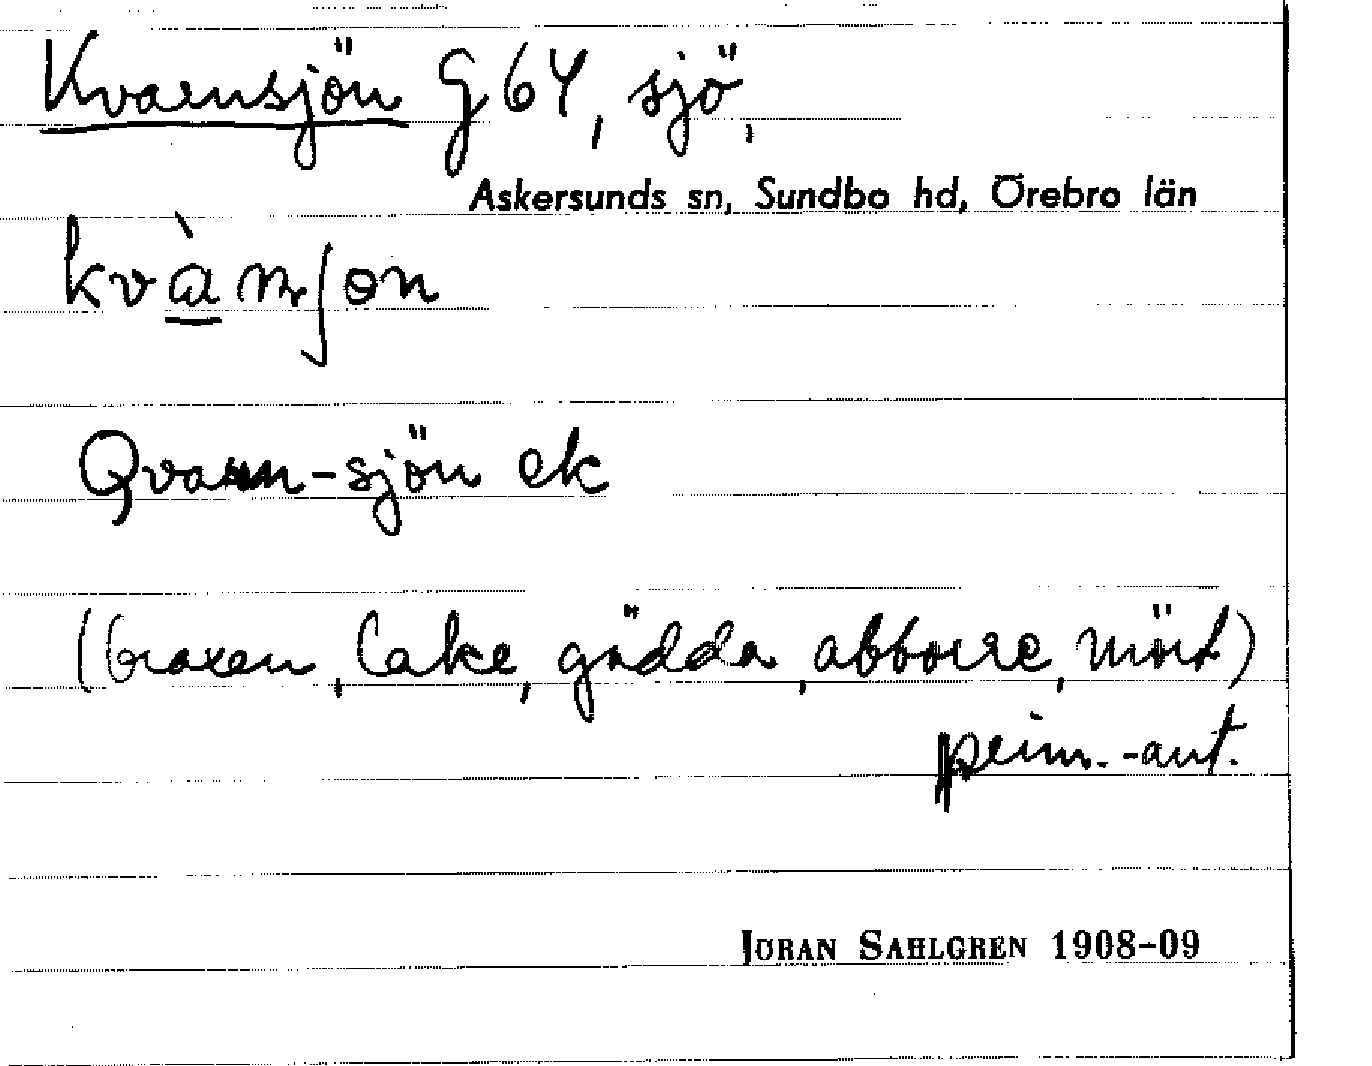 Kvarnsjön G64, sjö,
Askersunds sn, Sundbo hd, Örebro län
Qvarn-sjön ek
(braxen, lake, gädda, abborre, mört)
prim.-ant.
JÖRAN SAHLGREN 1908-09